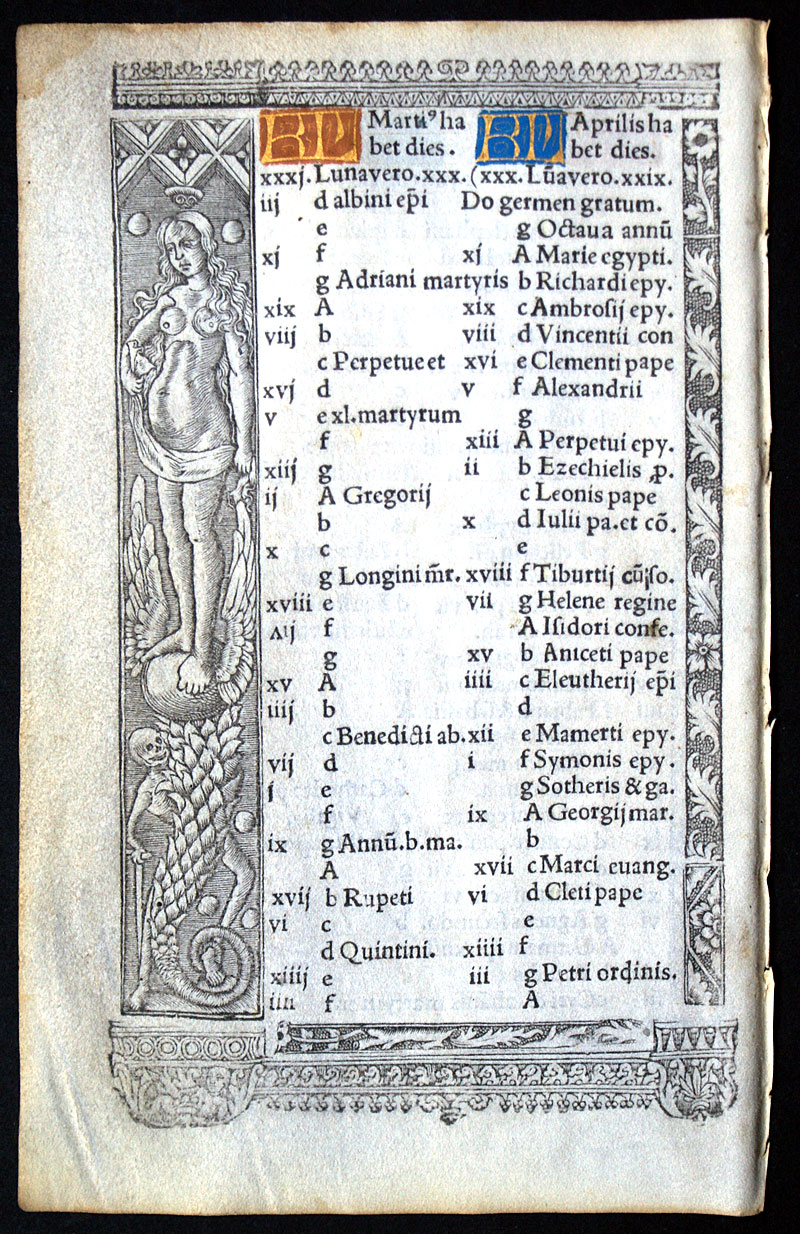 KL Martiꝰ ha
bet dies.
xxxj. Lunavero.xxx.
iij d albini ep̄i
e
xj f
g Adriani martyris
xix A
viij b
c Perpetue et
xvj d
v e xl.martyrum
f
xiij g
ij A Gregorij
b
x c
g Longini m̄r.
xviii e
vij f
g
xv A
iiij b
c Benedicti ab.
vij d
j e
f
ix g Annũ.b.ma.
A
xvij b Rupeti
vi c
d Quintini.
xiiij e
iiii f
KL Aprilis ha
bet dies.
(xxx. Lũavero.xxix.
Do germen gratum.
g Octaua annũ
xj A Marie egypti.
b Richardi epy.
xix c Ambrosij epy.
viii d Vincentii con
xvi e Clementi pape
v f Alexandrii
g
xiii A Perpetui epy.
ii b Ezechielis ꝓ.
c Leonis pape
x d Iulii pa. et cõ.
e
xviii f Tiburtij
vii g Helene regine
A Isidori confe.
xv b Aniceti pape
iiii c Eleutherij ep̄i
d
xii e Mamerti epy.
i f Symonis epy.
g Sotheris & ga.
ix A Georgij mar.
b
xvii c Marci euang.
vi d Cleti pape
e
xiiii f
iii g Petri ordinis.
A